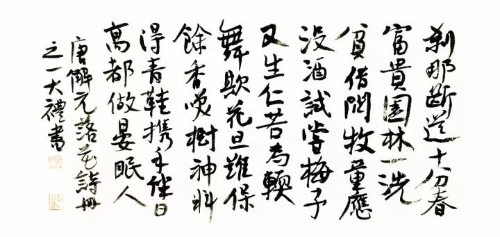 刹那断送十分春
富貴園林一洗
貧借問牧童應
没酒試嘗梅子
又生仁若為軟
舞欺花旦難保
餘香笑樹神料
得青鞋携手伴日
高都做晏眠人
唐解元落花詩册
之一大禮書